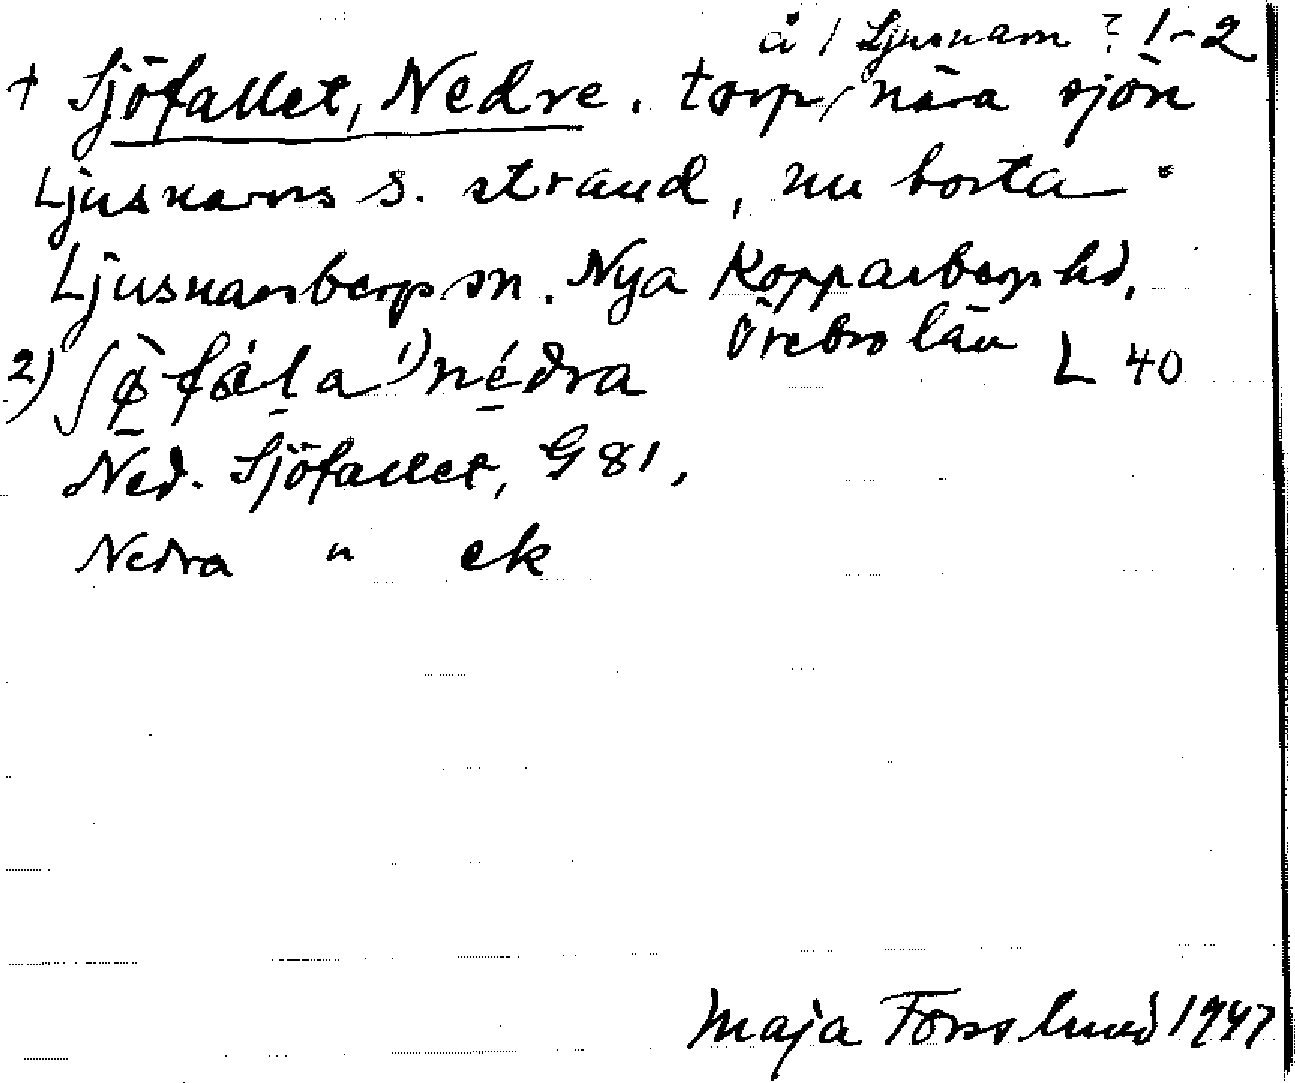 å / Ljusnarn ? 1-2
+ Sjöfallet, Nedre. torp, nära sjön
Ljusnarns s. strand, nu borta.
Ljusnarsbergs sn. Nya Kopparbergs hd,
Örebro län L 40
2) ʃø̀fáḷa 1) nédra
Ned. Sjöfallet, G 81,
Nedra " ek
Maja Forsslund 1947